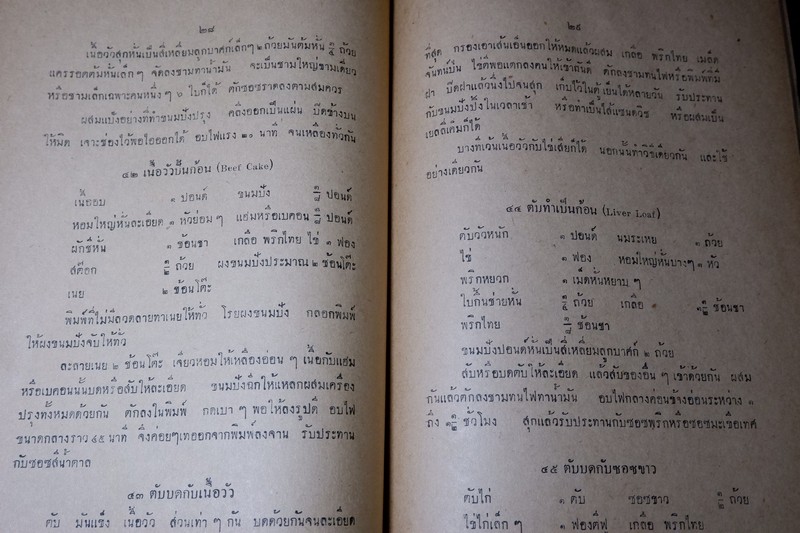 ๒๘
เนื้อวัวสุกหั่นเป็นสี่เหลี่ยมลูกบาศก์เล็กๆ ๒ ถ้วยมันต้มหั่น ถ้วย
แครรอตต้มหั่นเล็กๆ จัดลงชามทาน้ำมัน จะเป็นชามใหญ่ชามเดียว
หรือชามเล็กเฉพาะคนหนึ่งๆ ๖ ใบก็ได้ ตักซอซราดลงตามสมควร
ผสมแป้งอย่างที่ทำขนมปังปรุง คลึงออกเป็นแผ่น ปิดข้างบน
ให้มิด เจาะช่องไว้พอไอออกได้ อบไฟแรง ๒๐ นาที จนเหลืองทั่วกัน
๔๒ เนื้อวัวปั้นก้อน (Beef Cake)
เนื้ออบ ๑ ปอนด์ ขนมปัง ปอนด์
หอมใหญ่หั่นละเอียด ๑ หัวย่อมๆ แฮ่มหรือเบคอน ปอนด์
ผักชีหั่น ๑ ช้อนชา เกลือ พริกไทย ไข่ ๑ ฟอง
สต๊อก ถ้วย ผงขนมปังประมาณ ๒ ช้อนโต๊ะ
เนย ๒ ช้อนโต๊ะ
พิมพ์ที่ไม่มีลวดลายทาเนยให้ทั่ว โรยผงขนมปัง กลอกพิมพ์
ให้ผงขนมปังจับให้ทั่ว
ละลายเนย ๒ ช้อนโต๊ะ เจียวหอมให้เหลืองอ่อนๆ เนื้อกับแฮ่ม
หรือเบคอนนั้นบดหรือสับให้ละเอียด ขนมปังฉีกให้แหลกผสมเครื่อง
ปรุงทั้งหมดด้วยกัน ตักลงในพิมพ์ กดเบาๆ พอให้ลงรูปดี อบไฟ
ขนาดกลางราว ๔๕ นาที จึงค่อยๆเทออกจากพิมพ์ลงจาน รับประทาน
กับซอซสีน้ำตาล
๔๓ ตับบดกับเนื้อวัว
ตับ มันแข็ง เนื้อวัว ส่วนเท่าๆ กัน บดด้วยกันจนละเอียด
๒๙
ที่สุด กรองเอาเส้นเอ็นออกให้หมดแล้วผสม เกลือ พริกไทย เมล็ด
จันทน์ป่น ไข่ดีพอแตกลงคนให้เข้ากันดี ตักลงชามทนไฟหรือพิมพ์ที่มี
ฝา ปิดฝาแล้วนึ่งไปจนสุก เก็บไว้ในตู้เย็นได้หลายวัน รับประทาน
กับขนมปังปิ้งในเวลาเช้า หรือทำเป็นไส้แซนดวิช หรือผสมเป็น
เยลลี่เค็มก็ได้
บางทีเว้นเนื้อวัวกับไข่เสียก็ได้ นอกนั้นทำวิธีเดียวกัน และใช้
อย่างเดียวกัน
๔๔ ตับทำเป็นก้อน (Liver Loaf)
ตับวัวหนัก ๑ ปอนด์ นมระเหย ๑ ถ้วย
ไข่ ๑ ฟอง หอมใหญ่หั่นบางๆ ๑ หัว
พริกหยวก ๑ เม็ดหั่นหยาบๆ
ใบกึ้นช่ายหั่น ถ้วย เกลือ ช้อนชา
พริกไทย ช้อนชา
ขนมปังปอนด์หั่นเป็นสี่เหลี่ยมลูกบาศก์ ๒ ถ้วย
สับหรือบดตับให้ละเอียด แล้วสับของอื่นๆ เข้าด้วยกัน ผสม
กันแล้วตักลงชามทนไฟทาน้ำมัน อบไฟกลางค่อนข้างอ่อนระหว่าง ๑
ถึง ๑ ชั่วโมง สุกแล้วรับประทานกับซอซพริกหรือซอซมะเขือเทศ
๔๕ ตับบดกับซอซขาว
ตับไก่ ๑ ตับ ซอซขาว ถ้วย
ไข่ไก่เล็กๆ ๑ ฟองตีฟู เกลือ พริกไทย